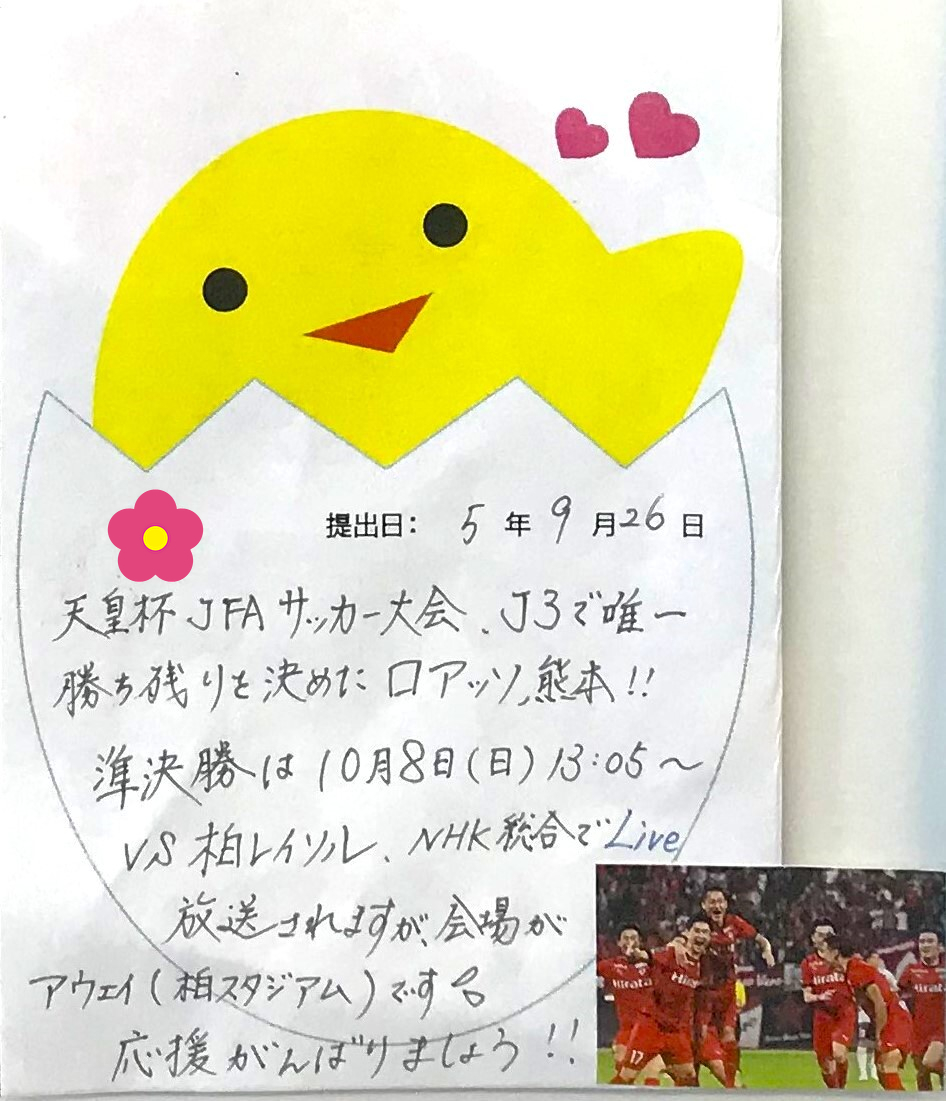 提出日: 5年9月26日
天皇杯JFAサッカー大会、J3で唯一
勝ち残りを決めたロアッソ熊本!!
準決勝は10月8日(日)13:05〜
VS柏レイソル、NHK総合でLive
放送されますが、会場が
アウェイ(柏スタジアム)です。
応援がんばりましょう!!
Hirata
17
Hirata
Hirata